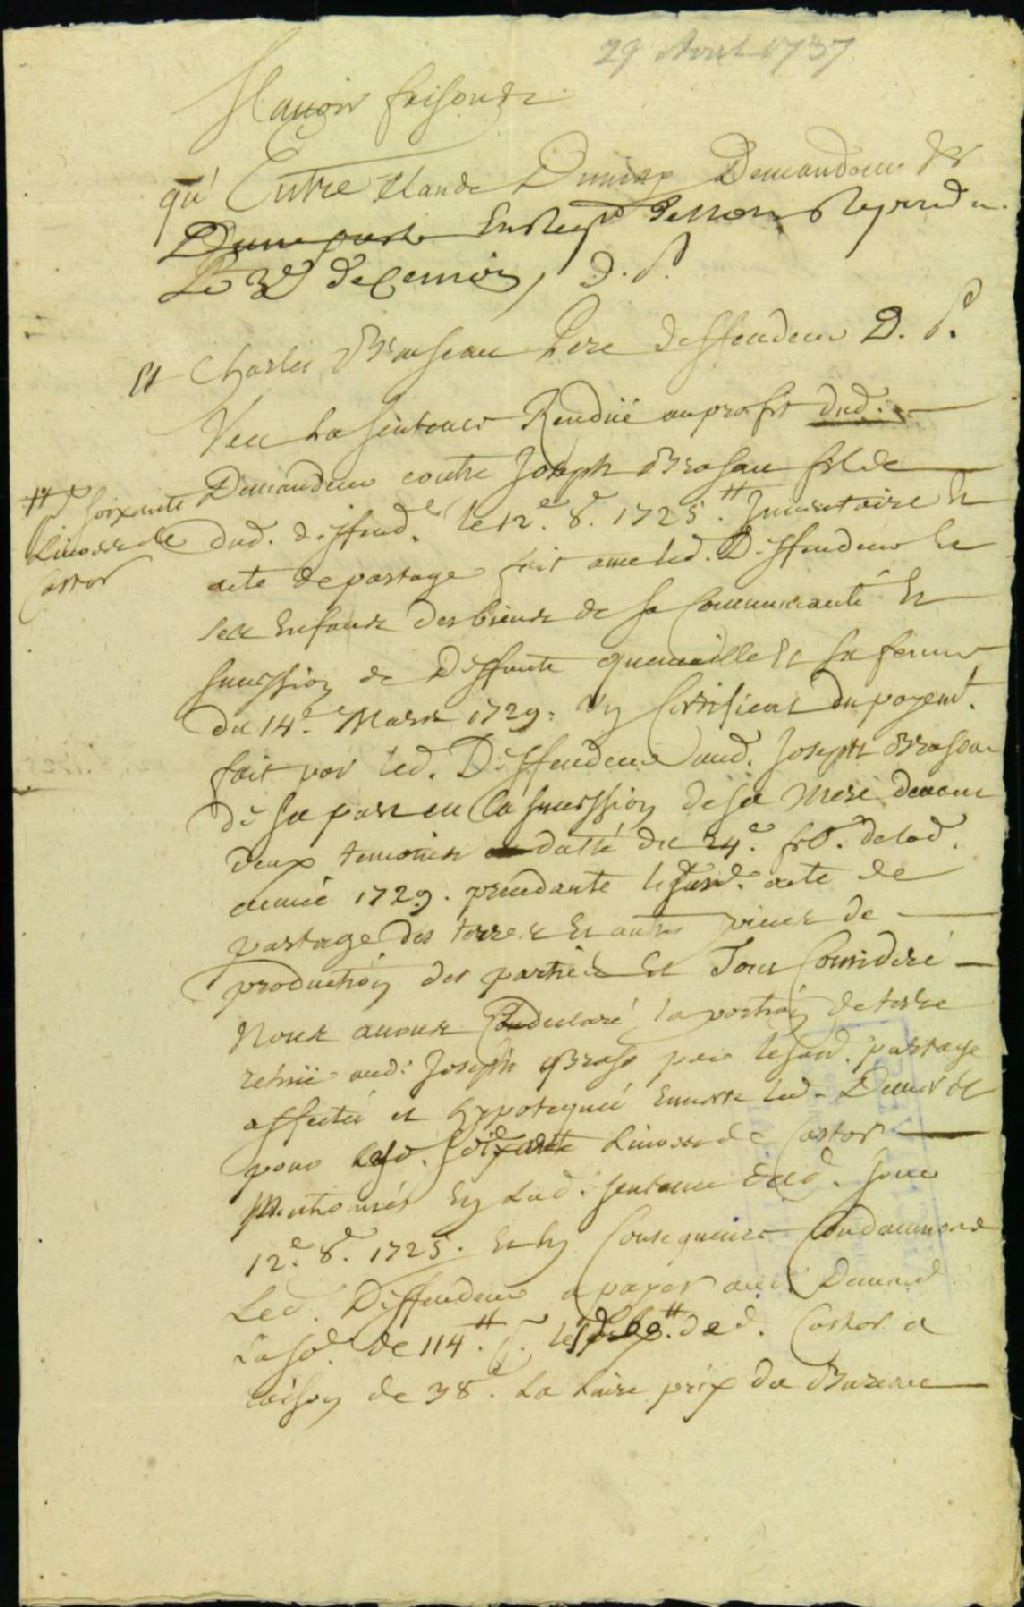 29 Avril 1737
qu' Entre Claude Dumay Demandeur &
D'une part
Le 3e decembre, D. P.
Et Charles Braseau Pere deffendeur D. P.
Veu La sentence Rendüe au profit dud.
Demandeur contre Joseph Brasau fils de
soixante
Livres de
Castor
dud. deffend.r le 12.e 8.e 1725. Inventaire Et
acte de partage fait entre led. Deffendeur Et
ses Enfans des biens de sa Communauté Et
succession de Deffunte sa femme
du 14.e Mars 1729. Un Certificat du payem.t
fait par led. Deffendeur aud. Joseph Braseau
de sa part en la succession de sa Mere devant
deux temoins datté du 24.e de lad.
année 1729. precedante led. acte de
partage des terres Et autres pieces de
production des parties Et Tout Consideré
Nous avons declaré la portion de terre
echüe aud. Joseph Braso par led. partage
affectée et hypotequée Envers led. Demand.r
pour soixante Livres de Castor
Mentionnés En lad. sentence dud. jour
12.e 8.e 1725. Et En Consequence Condamnons
Led. Deffendeur a payer aud. Demand.
La so.e de 114.# de d. Castor a
raison de 38.s La Livre prix du Bureau